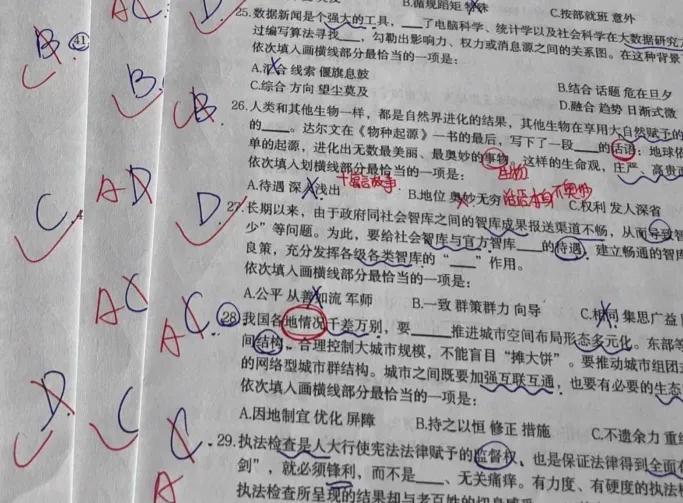 B.循规蹈矩 特殊 C.按部就班 意外
25.数据新闻是个强大的工具,____了电脑科学、统计学以及社会科学在大数据研究
过编写算法寻找____,勾勒出影响力、权力或消息源之间的关系图。在这种背景
依次填入画横线部分最恰当的一项是:
A.汇合 线索 偃旗息鼓 B.结合 话题 危在旦夕
C.综合 方向 望尘莫及 D.融合 趋势 日渐式微
26.人类和其他生物一样,都是自然界进化的结果,其他生物在享用大自然赋予的
的____。达尔文在《物种起源》一书的最后,写下了一段____的话语:地球依
单的起源,进化出无数最美丽、最奥妙的事物。这样的生命观,庄严、高贵而
依次填入划横线部分最恰当的一项是:
A.待遇 深入浅出 B.地位 奥妙无穷 C.权利 发人深省
话语本身不奥妙
27.长期以来,由于政府同社会智库之间的智库成果报送渠道不畅,从而导致智
少”等问题。为此,要给社会智库与官方智库____的待遇,建立畅通的智库
良策,充分发挥各级各类智库的“____”作用。
依次填入画横线部分最恰当的一项是:
A.公平 从善如流 军师 B.一致 群策群力 向导 C.相同 集思广益
28.我国各地情况千差万别,要____推进城市空间布局形态多元化。东部等
间结构,合理控制大城市规模,不能盲目“摊大饼”。要推动城市组团式
的网络型城市群结构。城市之间既要加强互联互通,也要有必要的生态
依次填入画横线部分最恰当的一项是:
A.因地制宜 优化 屏障 B.持之以恒 修正 措施 C.不遗余力 重组
29.执法检查是人大行使宪法法律赋予的监督权、也是保证法律得到全面
剑”,就必须锋利,而不是____、无关痛痒。有力度、有硬度的执法检
执法检查所呈现的结果却与老百姓的切身感受
A D
B. 41
B.
B
C. A D D.
A C A C. 28
D. C C
A